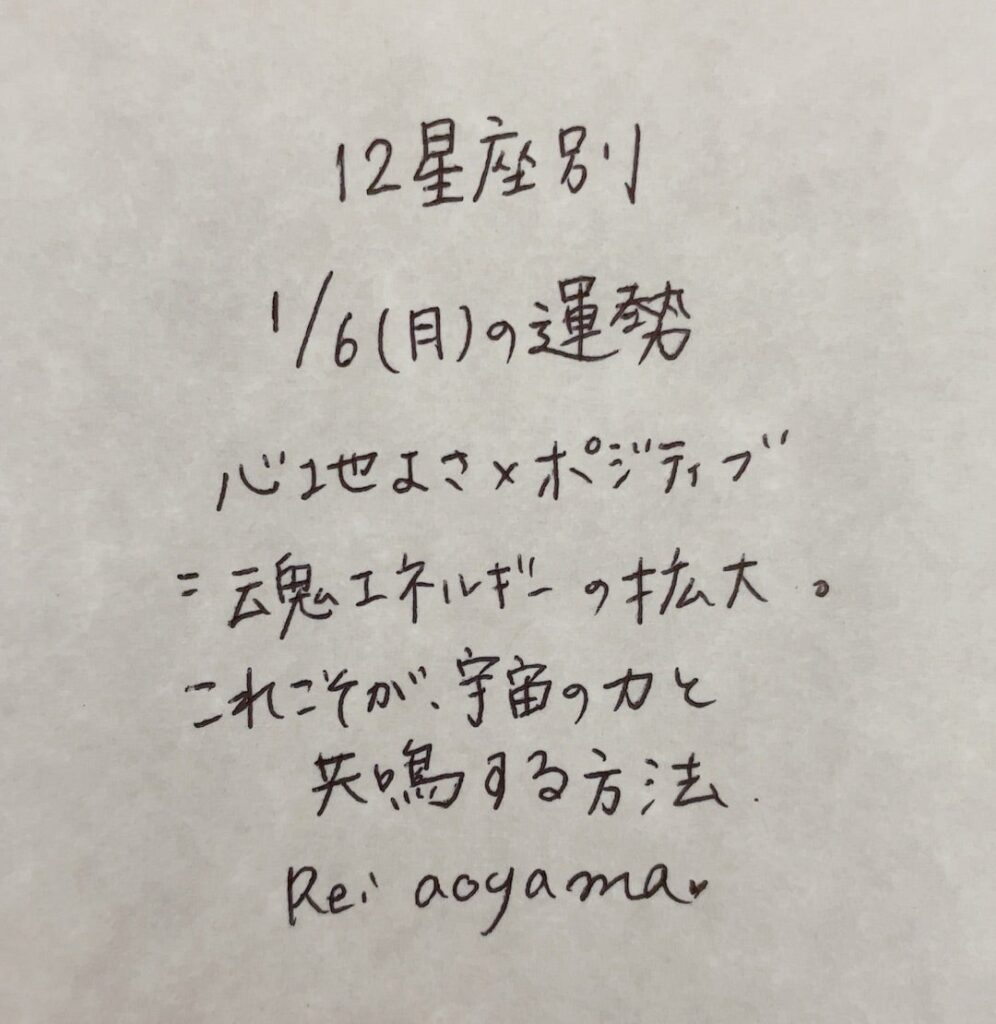 12星座別
1/6(月)の運勢
心地よさ×ポジティブ
=魂エネルギーの拡大。
これこそが、宇宙の力と
共鳴する方法.
Rei aoyama♥